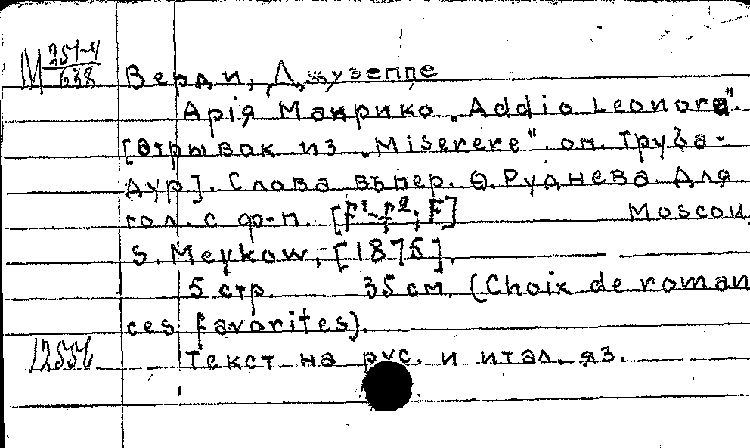 М 251-4/638 Верди, Джузеппе
Арія Манрико „Addio Leonora".
[Отрывок из „Miserere" оп. Труба-
дур]. Слова в пер. Ѳ. Руднева для
гол. с ф-п. [f¹-f²; F] Moscou,
S. Meykow, [1875].
5 стр. 35 см. (Choix de roman
ces favorites).
12556 Текст на рус. и итал. яз.